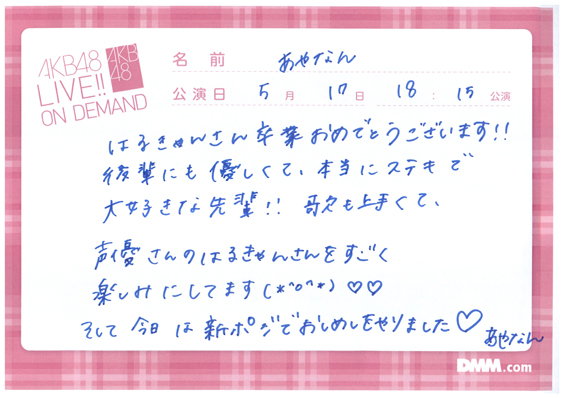 AKB48
LIVE!!
ON DEMAND
AKB
48
名前 あやなん
公演日 5月 17日 18:15 公演
はるきゃんさん卒業おめでとうございます!!
後輩にも優しくて、本当にステキで
大好きな先輩!! 歌も上手くて、
声優さんのはるきゃんさんをすごく
楽しみにしてます(*^o^*)♡♡
そして今日は新ポジでおしめしをやりました♡
あやなん
DMM.com